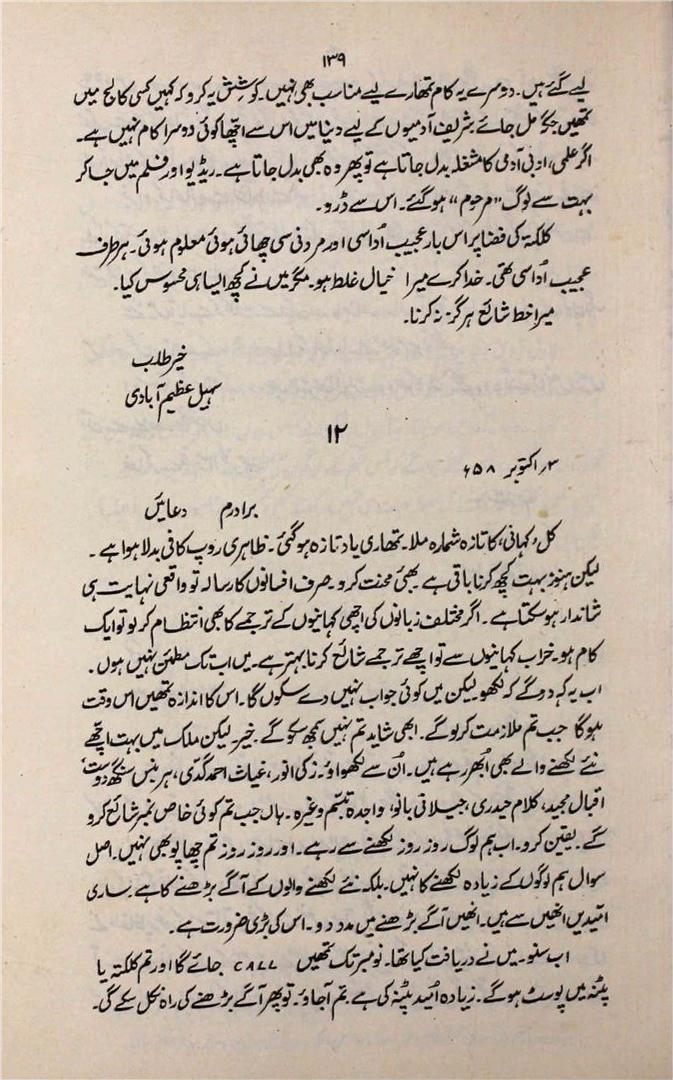 ۱۳۹
لیے گئے ہیں۔ دوسرے یہ کام تمھارے لیے مناسب بھی نہیں۔ کوشش یہ کرو کہ کہیں کسی کالج میں
تمھیں جگہ مل جائے۔ شریف آدمیوں کے لیے دنیا میں اس سے اچھا کوئی دوسرا کام نہیں ہے۔
اگر علمی، ادبی آدمی کا مشغلہ بدل جاتا ہے تو پھر وہ بھی بدل جاتا ہے۔ ریڈیو اور فلم میں جا کر
بہت سے لوگ "مرحوم" ہو گئے۔ اس سے ڈرو۔
کلکتہ کی فضا پر اس بار عجیب اُداسی اور مردنی سی چھائی ہوئی معلوم ہوئی۔ ہر طرف
عجیب اُداسی تھی۔ خدا کرے میرا خیال غلط ہو۔ مگر میں نے کچھ ایسا ہی محسوس کیا۔
میرا خط شائع ہرگز نہ کرنا۔
خیر طلب
سہیل عظیم آبادی
۱۲
۳؍ اکتوبر ۵۸ء
برادرم دعائیں
کل 'کہانی' کا تازہ شمارہ ملا۔ تمھاری یاد تازہ ہو گئی۔ ظاہری روپ کافی بدلا ہوا ہے۔
لیکن ہنوز بہت کچھ کرنا باقی ہے۔ بھئی محنت کرو۔ صرف افسانوں کا رسالہ تو واقعی نہایت ہی
شاندار ہو سکتا ہے۔ اگر مختلف زبانوں کی اچھی کہانیوں کے ترجمے کا بھی انتظام کر لو تو ایک
کام ہو۔ خراب کہانیوں سے تو اچھے ترجمے شائع کرنا بہتر ہے۔ میں اب تک مطمئن نہیں ہوں۔
اب یہ کہہ دو گے کہ لکھو لیکن میں کوئی جواب نہیں دے سکوں گا۔ اس کا اندازہ تمھیں اس وقت
ہو گا جب تم ملازمت کر لو گے۔ ابھی شاید تم نہیں سمجھ سکو گے۔ خیر لیکن ملک میں بہت اچھے
نئے لکھنے والے بھی اُبھر رہے ہیں۔ اُن سے لکھواؤ۔ زکی انور، غیاث احمد گدی، ہر بنس سنگھ دوست،
اقبال مجید، کلام حیدری، جیلانی بانو، واجدہ تبسّم وغیرہ۔ ہاں جب تم کوئی خاص نمبر شائع کرو
گے۔ یقین کرو۔ اب ہم لوگ روز روز لکھنے سے رہے۔ اور روز روز تم چھاپو بھی نہیں۔ اصل
سوال ہم لوگوں کے زیادہ لکھنے کا نہیں۔ بلکہ نئے لکھنے والوں کے آگے بڑھنے کا ہے۔ ساری
امّیدیں انھیں سے ہیں۔ انھیں آگے بڑھنے میں مدد دو۔ اس کی بڑی ضرورت ہے۔
اب سنو۔ میں نے دریافت کیا تھا۔ نومبر تک تمھیں CALL جائے گا اور تم کلکتہ یا
پٹنہ میں پوسٹ ہو گے۔ زیادہ اُمید پٹنہ کی ہے۔ تم آجاؤ۔ تو پھر آگے بڑھنے کی راہ نکل سکے گی۔